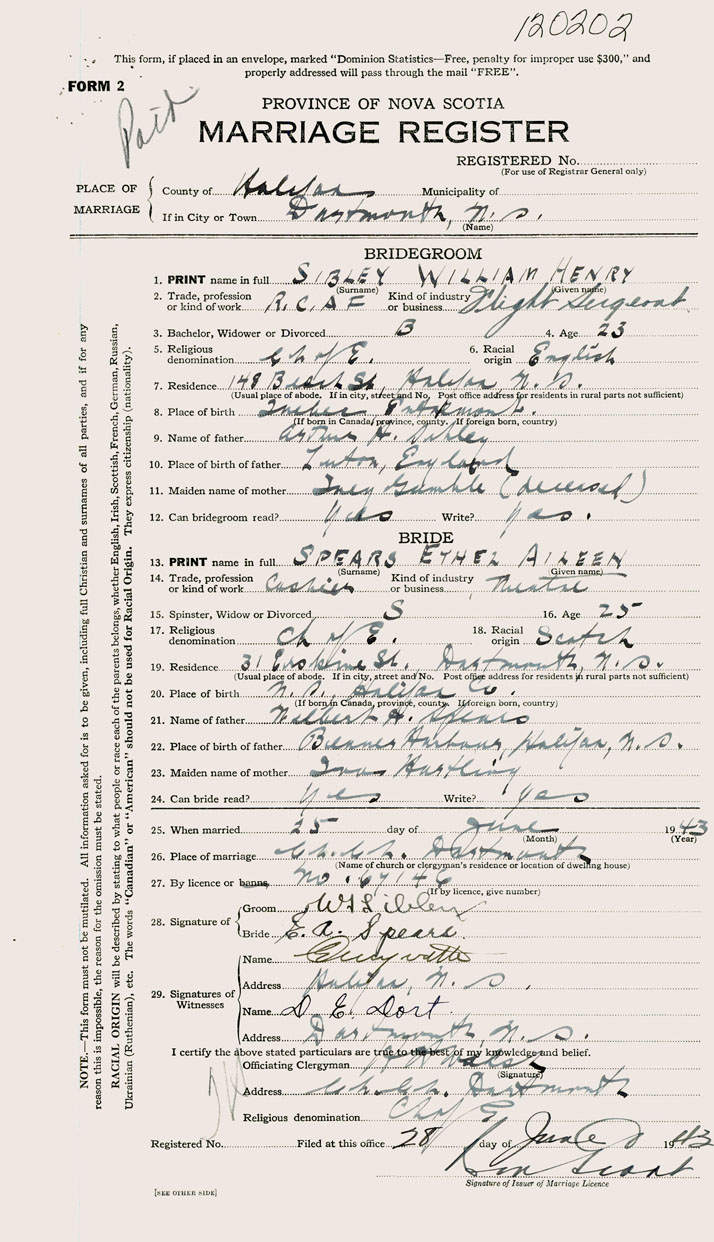 120202
This form, if placed in an envelope, marked "Dominion Statistics—Free, penalty for improper use $300," and
properly addressed will pass through the mail "FREE".
FORM 2
Paid.
PROVINCE OF NOVA SCOTIA
MARRIAGE REGISTER
REGISTERED No.
(For use of Registrar General only)
PLACE OF MARRIAGE
County of Halifax Municipality of
If in City or Town Dartmouth, N. S.
(Name)
BRIDEGROOM
1. PRINT name in full SIBLEY WILLIAM HENRY
(Surname) (Given name)
2. Trade, profession or kind of work R.C.A.F Kind of industry or business Flight Sergeant
3. Bachelor, Widower or Divorced B 4. Age 23
5. Religious denomination Ch of E. 6. Racial origin English
7. Residence 148 St, Halifax N. S.
(Usual place of abode. If in city, street and No. Post office address for residents in rural parts not sufficient)
8. Place of birth
(If born in Canada, province, county. If foreign born, country)
9. Name of father Arthur H. Sibley
10. Place of birth of father Luton, England
11. Maiden name of mother Inez Gamble (deceased)
12. Can bridegroom read? Yes Write? Yes.
BRIDE
13. PRINT name in full SPEARS ETHEL AILEEN
(Surname) (Given name)
14. Trade, profession or kind of work Cashier Kind of industry or business Theatre
15. Spinster, Widow or Divorced S 16. Age 25
17. Religious denomination Ch of E. 18. Racial origin Scotch
19. Residence 31 Erskine St. Dartmouth, N. S.
(Usual place of abode. If in city, street and No. Post office address for residents in rural parts not sufficient)
20. Place of birth N. S., Halifax Co.
(If born in Canada, province, county. If foreign born, country)
21. Name of father H. Spears
22. Place of birth of father Harbour, Halifax, N. S.
23. Maiden name of mother Hartling
24. Can bride read? Yes Write? Yes
25. When married 25 day of June 1943
(Month) (Year)
26. Place of marriage Ch. Ch. Dartmouth
(Name of church or clergyman's residence or location of dwelling house)
27. By licence or banns No. 67146
(If by licence, give number)
28. Signature of
Groom W H Sibley
Bride E. A. Spears
29. Signatures of Witnesses
Name
Address Halifax, N. S.
Name D. E. Dort
Address Dartmouth, N. S.
I certify the above stated particulars are true to the best of my knowledge and belief.
Officiating Clergyman
(Signature)
Address Ch. Ch. Dartmouth
Religious denomination Ch of E
Registered No. Filed at this office 28 day of June 1943
Ron Grant
Signature of Issuer of Marriage Licence
[SEE OTHER SIDE]
NOTE.—This form must not be mutilated. All information asked for is to be given, including full Christian and surnames of all parties, and if for any
reason this is impossible, the reason for the omission must be stated.
RACIAL ORIGIN will be described by stating to what people or race each of the parents belongs, whether English, Irish, Scottish, French, German, Russian,
Ukrainian (Ruthenian), etc. The words "Canadian" or "American" should not be used for Racial Origin. They express citizenship (nationality).